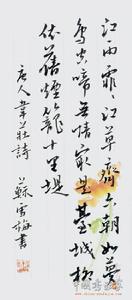 江雨霏〻江草齊六朝如夢
鳥空啼無情最是臺城柳
依舊煙籠十里堤
唐人韋莊詩
蘇雪梅書